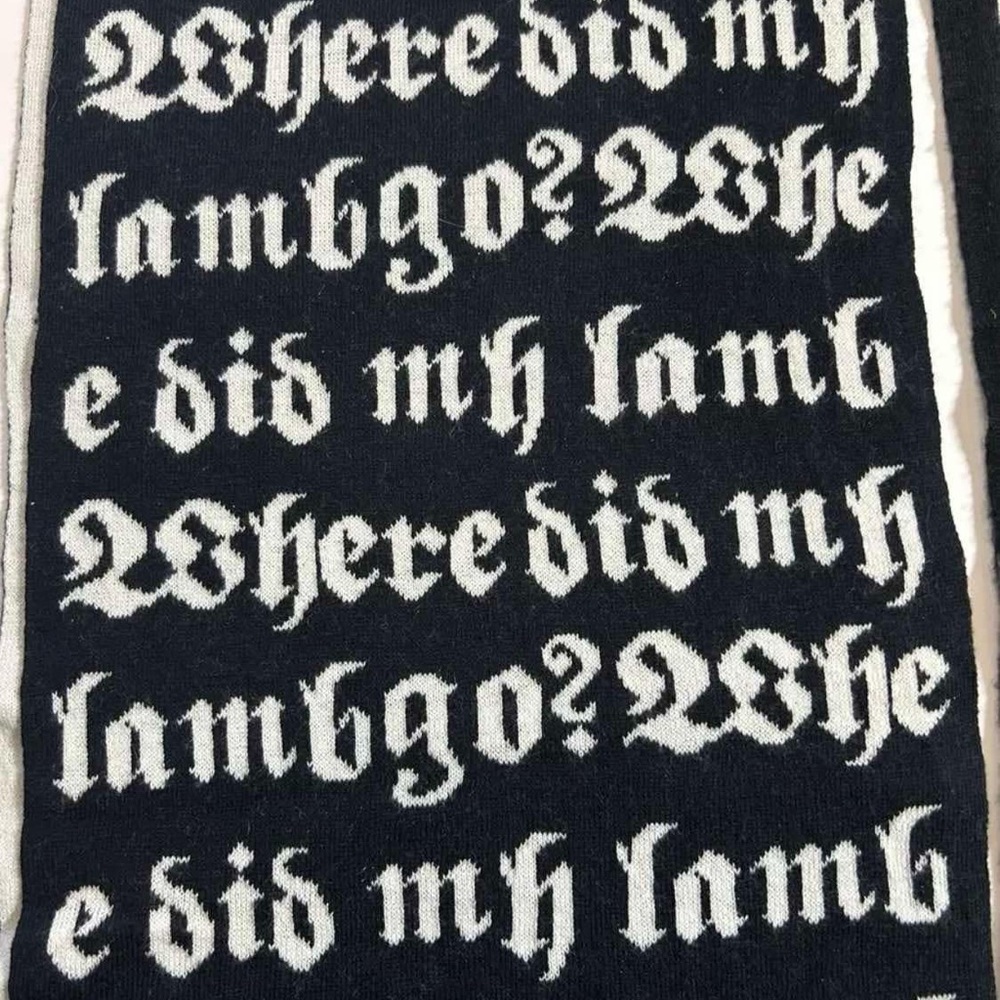 Where did my
lamb go? Whe
e did my lamb
Where did my
lamb go? Whe
e did my lamb